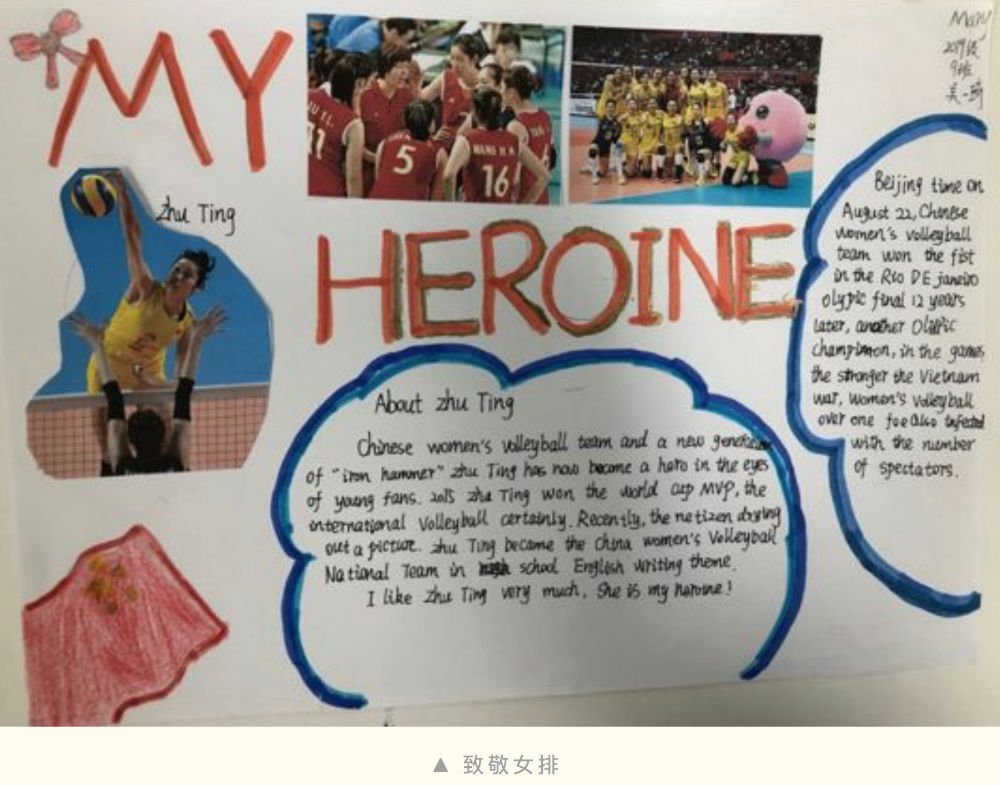 MY
HEROINE
Mary
2019级
9班
Zhu Ting
5
WANG H.M.
16
About Zhu Ting
Chinese women's volleyball team and a new generation
of "iron hammer" Zhu Ting has now become a hero in the eyes
of young fans. 2015 Zhu Ting won the world cup MVP, the
international Volleyball certainly. Recently, the netizen drying
out a picture. Zhu Ting became the China women's Volleyball
National Team in high school English writing theme.
I like Zhu Ting very much, She is my heroine!
Beijing time on
August 22, Chinese
Women's volleyball
team won the fist
in the Rio DE janeiro
olypic final 12 years
later, another Olilpic
champinmon, in the games
the stronger the Vietnam
war, women's volleyball
over one foe also infected
with the number
of spectators.
▲ 致敬女排